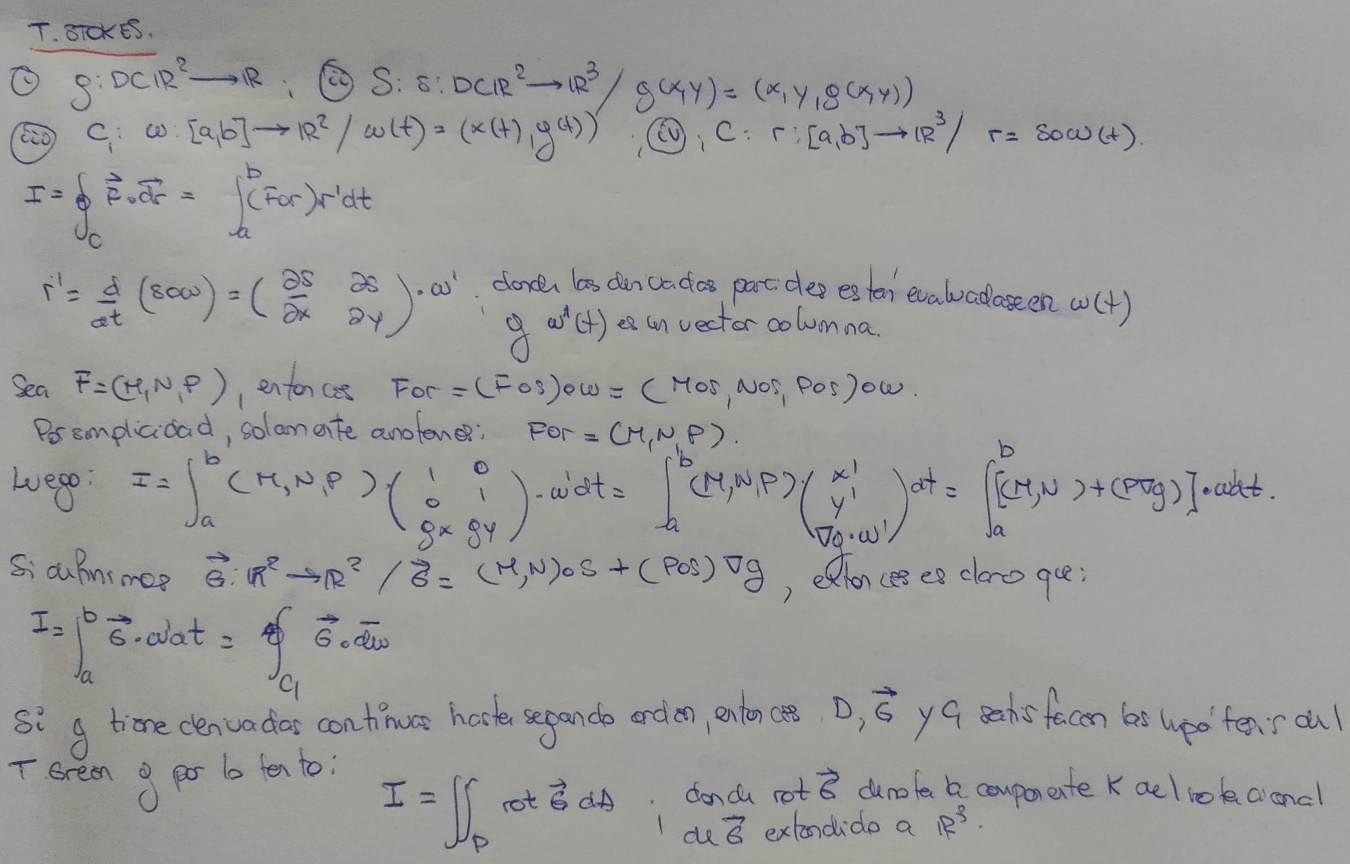 T. STOKES.
(i) g: D⊂ℝ² → ℝ ; (ii) S: s: D⊂ℝ² → ℝ³ / g(x,y) = (x, y, g(x,y))
(iii) C₁: ω: [a,b] → ℝ² / ω(t) = (x(t), y(t)) ; (iv) C: r: [a,b] → ℝ³ / r = soω(t).
I = ∮_C F⃗ · dr⃗ = ∫_a^b (For) r' dt
r' = d/dt (soω) = (∂s/∂x ∂s/∂y) · ω' . donde las derivadas parciales están evaluadas en ω(t)
y ω'(t) es un vector columna.
Sea F̄ = (M, N, P), entonces For = (Fos)oω = (Mos, Nos, Pos)oω.
Por simplicidad, solamente anotemos: For = (M, N, P).
Luego: I = ∫_a^b (M, N, P) · (1 0 ; 0 1 ; gx gy) · ω'dt = ∫_a^b (M, N, P) · (x' ; y' ; ∇g·ω') dt = ∫_a^b [(M, N) + (P∇g)] · ω'dt.
Si definimos G⃗: ℝ² → ℝ² / G⃗ = (M, N)oS + (Pos) ∇g , entonces es claro que:
I = ∫_a^b G⃗ · ω'dt = ∮_C₁ G⃗ · dω̄
Si g tiene derivadas continuas hasta segundo orden, entonces D, G⃗ y C₁ satisfacen las hipótesis del
T Green y por lo tanto:
I = ∬_D rot G⃗ dA , donde rot G⃗ denota la componente K del rotacional
de G⃗ extendido a ℝ³.